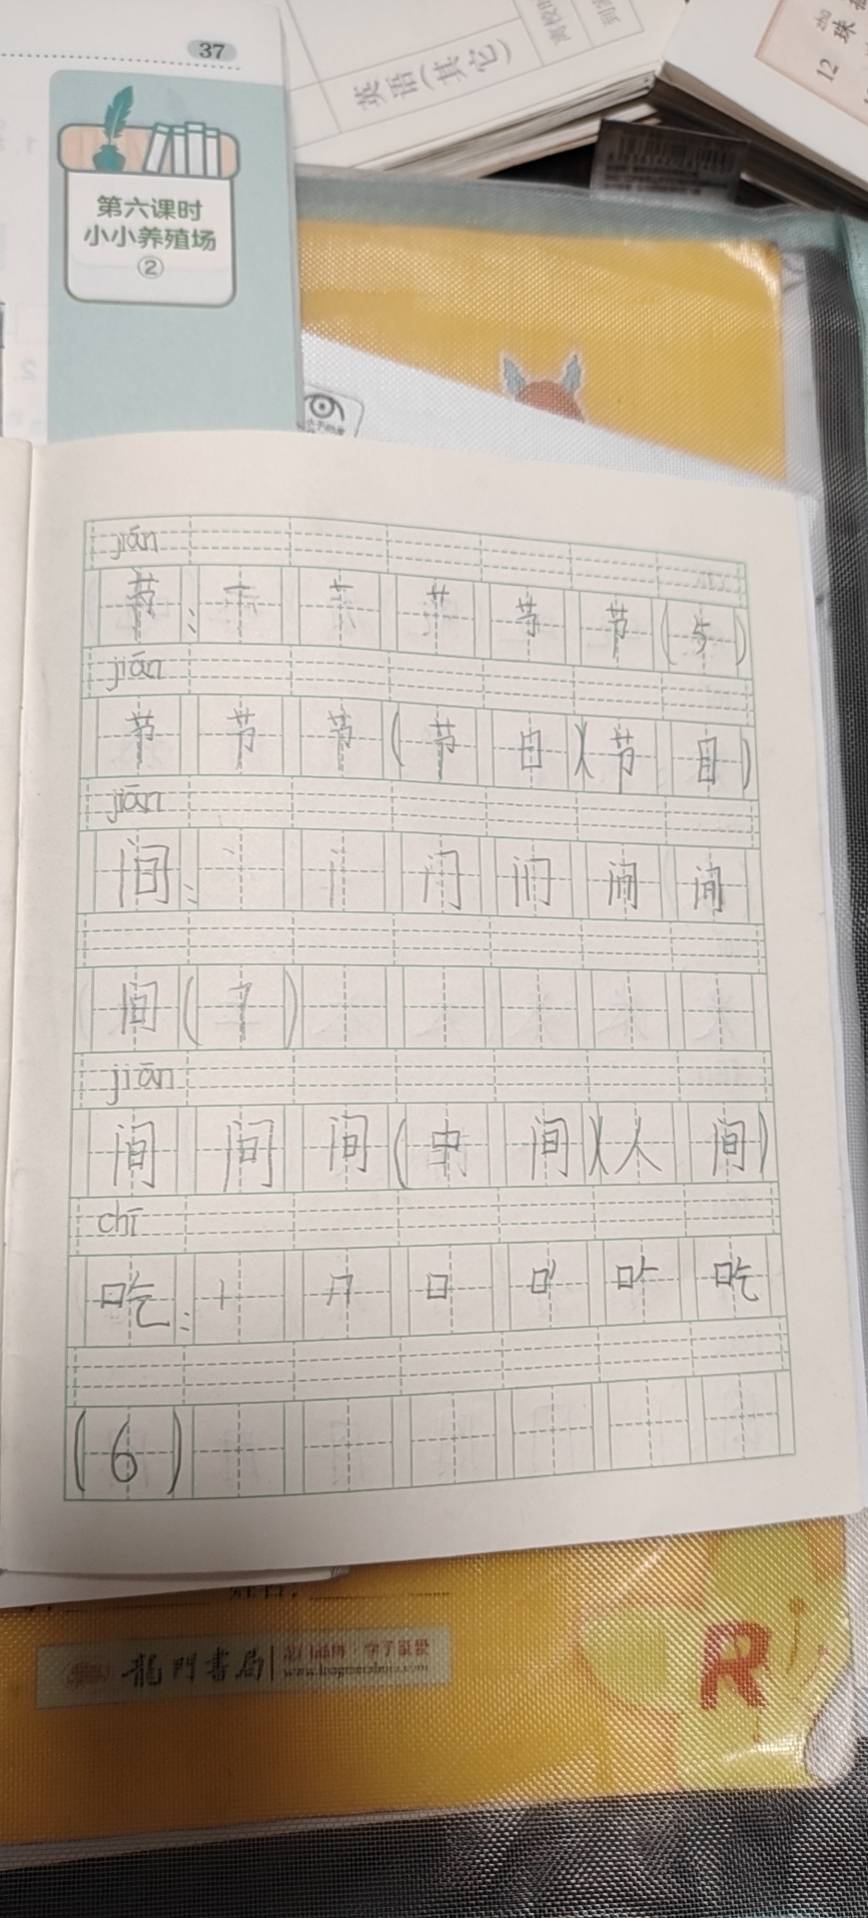 37
第六课时
小小养殖场
②
英语(其它)
12 珠
jián
节：一 艹 艹 节 节 (5)
jiān
节 节 节 (节 日)(节 目)
jiān
间：丶 丨 门 问 间 间
间 (7)
jiān
间 间 间 (中 间)(人 间)
chī
吃：丨 𠃍 口 口丿 口𠂉 吃
(6)
龍門書局
R